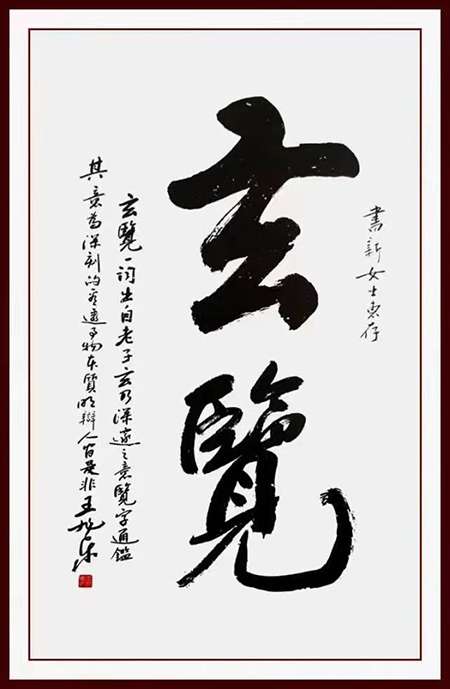 書新女士惠存
玄覽
玄覽一詞出自老子玄乃深遠之意覽字通鑑
其意為深刻的看透事物本質明辯人間是非王